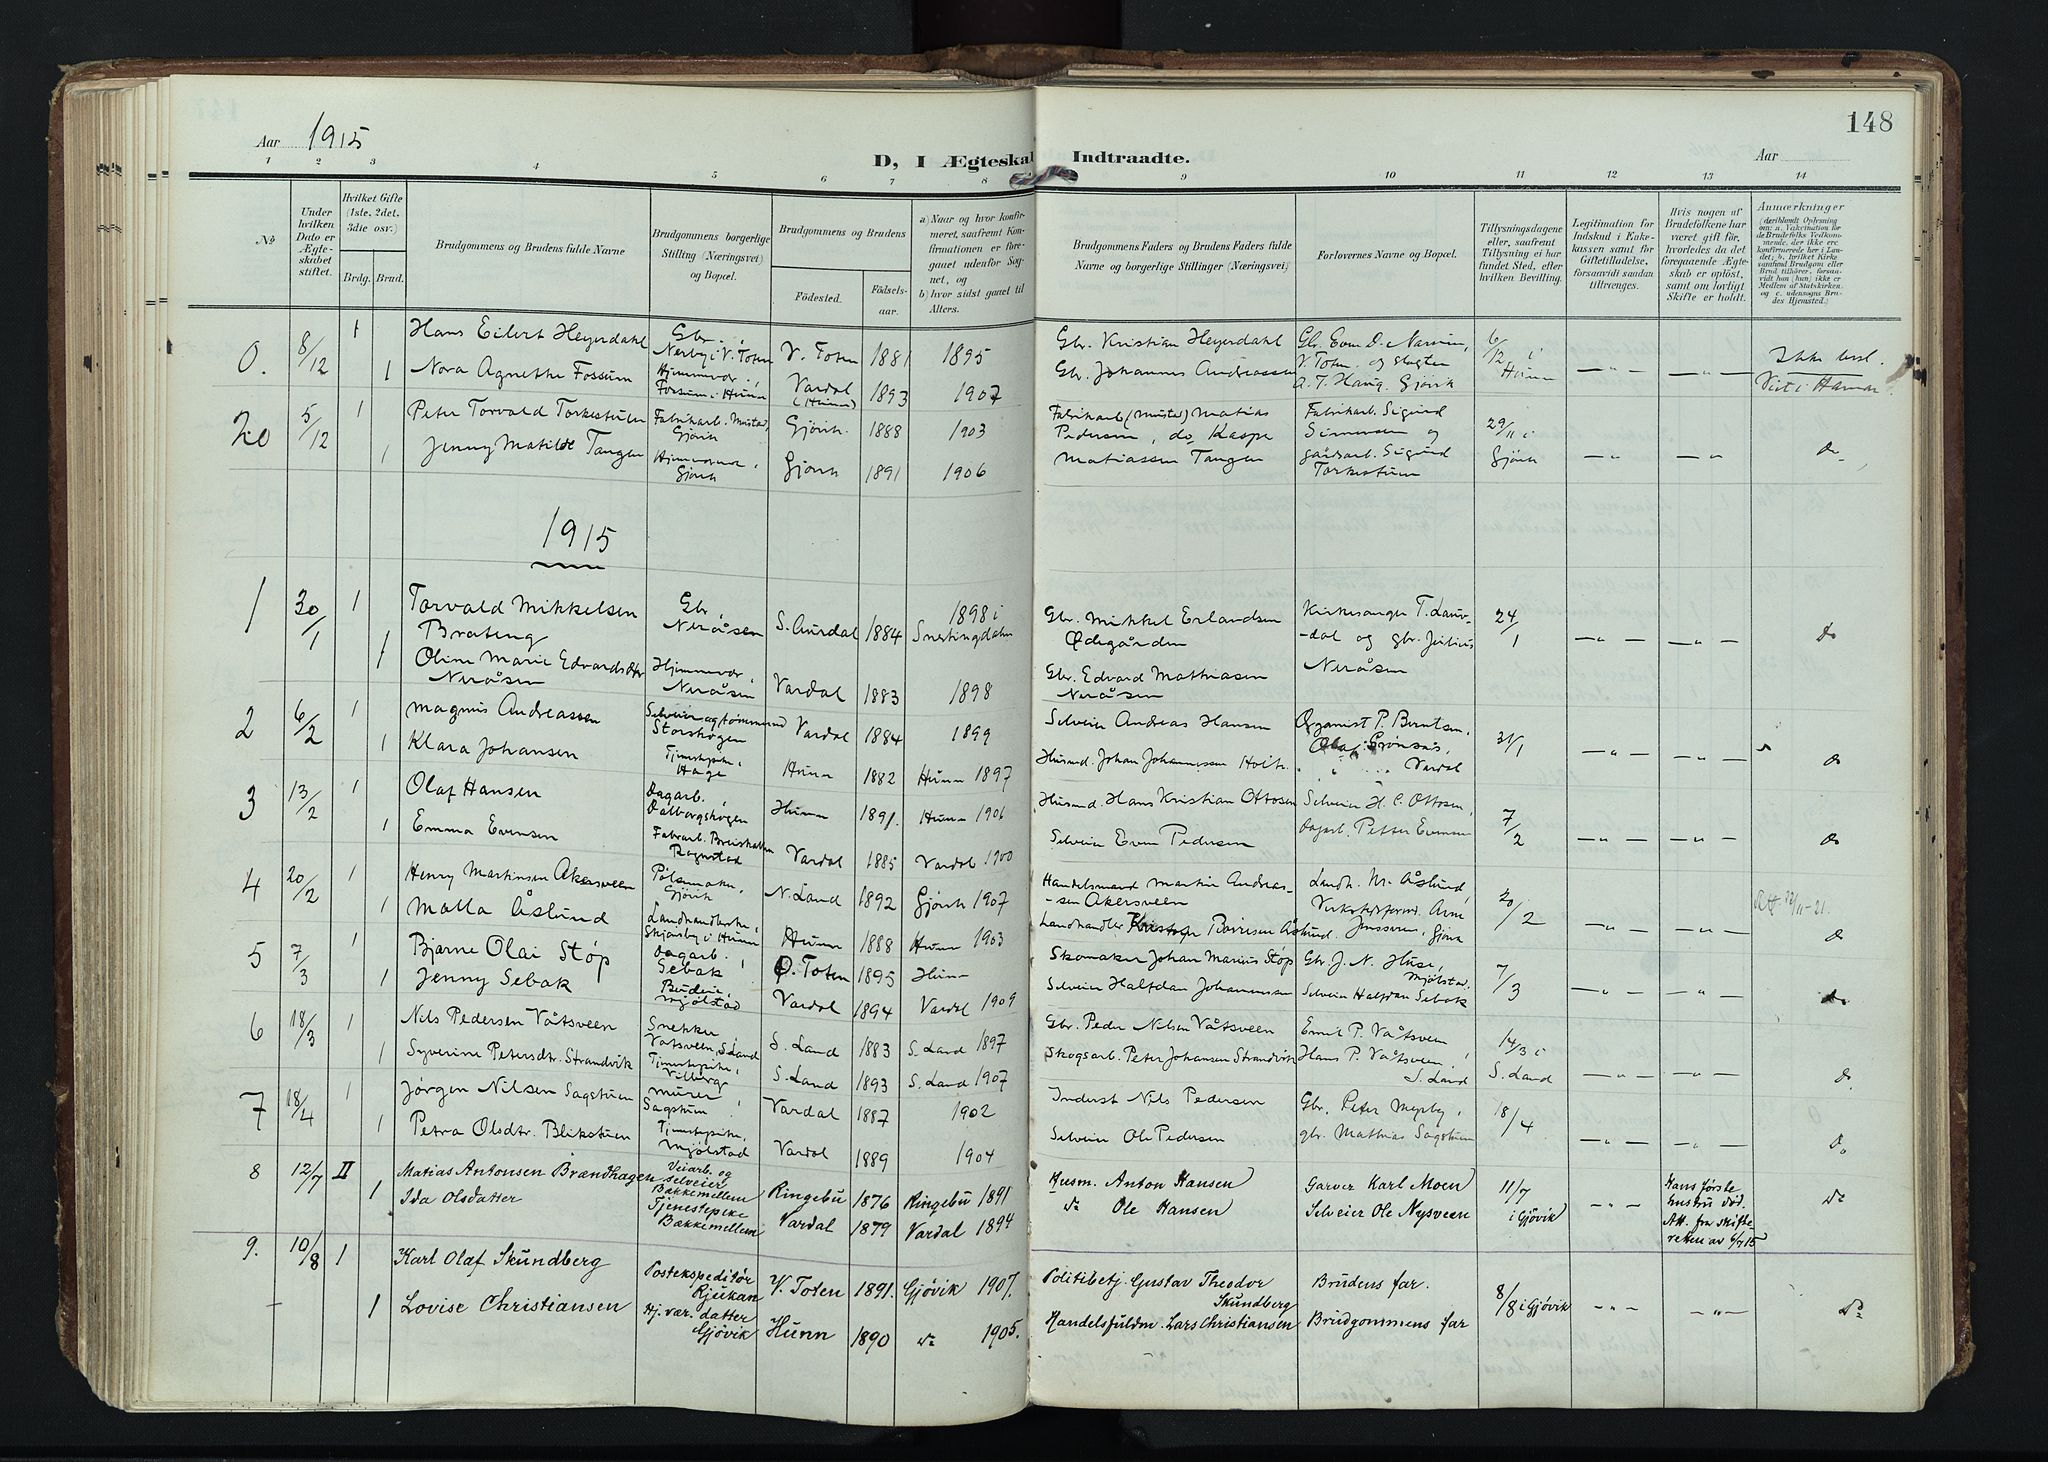 148
Aar 1915
Aar
D, I Ægteskab Indtraadte.
1 2 3 4 5 6 7 8 9 10 11 12 13 14
No
Under hvilken Dato er Ægteskabet stiftet.
Hvilket Gifte (1ste, 2det, 3die osv.)
Brdg. Brud.
Brudgommens og Brudens fulde Navne
Brudgommens borgerlige Stilling (Næringsvei) og Bopæl.
Brudgommens og Brudens
Fødested.
Fødselsaar.
a) Naar og hvor konfirmeret, saafremt Konfirmationen er foregaaet udenfor Sognet, og
b) hvor sidst gaaet til Alters.
Brudgommens Faders og Brudens Faders fulde Navne og borgerlige Stillinger (Næringsvei)
Forlovernes Navne og Bopæl.
Tillysningsdagene eller, saafremt Tillysning ei har fundet Sted, efter hvilken Bevilling.
Legitimation for Indskud i Enkekassen samt for Giftetilladelse, forsaavidt saadan tiltrænges.
Hvis nogen af Brudefolkene har været gift før, hvorledes da det foregaaende Ægteskab er opløst, samt om lovligt Skifte er holdt.
Anmærkninger
0. 8/12 1 Hans Eilert Heyerdahl Gbr., Nerby i V. Toten V. Toten 1881 1895 Gbr. Kristian Heyerdahl Gbr. Even D. Narum, 6/12 i Hunn — " — — " — Ikke besl.
1 Nora Agnethe Fossum Hjemmevær., Fossum i Hunn Vardal (Hunn) 1893 1907 Gbr. Johannes Andreassen V. Toten og A. T. Haug, Gjövik Viet i Hamar
20 5/12 1 Peter Torvald Torkestuen Fabrikarb. Mustad, Gjövik Gjövik 1888 1903 Fabrikarb. (Mustad) Matias Pedersen, Fabrikarb. Sigurd Simensen og 29/11 i Gjövik — " — — " — do
1 Jenny Matilde Tangen Hjemmevær., Gjövik Gjövik 1891 1906 do Kaspe Matiassen Tangen gårdarb. Sigurd Torkestuen
1915
1 30/1 1 Torvald Mikkelsen Brateng Gbr, Neråsen S. Aurdal 1884 1898 i Snertingdalen Gbr. Mikkel Erlandsen Ødegården Kirkesanger T. Laurdal og gbr. Julius Neråsen 24/1 — " — — " — do
1 Oline Marie Edvardsdtr Neråsen Hjemmevær, Neråsen Vardal 1883 1898 Gbr. Edvard Mathiasen Neråsen
2 6/2 1 Magnus Andreassen Selveier og tømmermand Storshøgen Vardal 1884 1899 Selveier Andreas Hansen Organist P. Berntsen, 31/1 — " — — " — do
1 Klara Johansen Tjenestepike, Hage Hunn 1882 Hunn 1897 Husmd. Johan Johannessen Holth. Olaf Grönsås, Vardal
3 13/2 1 Olaf Hansen Dagarb., Dalborgshøgen Hunn 1891. Hunn 1906 Husmd. Hans Kristian Ottosen Selveier H. C. Ottosen, 7/2 — " — — " — do
1 Emma Evensen Fabrarb. Breiskallen Rognstad Vardal 1885 Vardal 1900 Selveier Even Pedersen Dagarb. Petter Evensen
4 20/2 1 Henry Martinsen Akersveen Pølsemaker, Gjövik N. Land 1892 Gjövik 1907 Handelsmand Martin Andreassen Akersveen Landh. M. Åslund, 20/2 — " — — " — Att 22/11-21.
1 Malla Åslund Landhandlerske, Skjølsby i Hunn Hunn 1888 Hunn 1903 Landhandler Kristofer Åslund. Verkstedformd. Arne Jenssveen, Gjövik do
5 7/3 1 Bjarne Olai Støp Dagarb., Sebak Ø. Toten 1895 Hunn Skomaker Johan Marius Støp Gbr. J. N. Huse, Mjølstad, 7/3 — " — — " — do
1 Jenny Sebak Budeie, Mjølstad Vardal 1894 Vardal 1909 Selveier Halfdan Johannessen Selveier Halfdan Sebak
6 18/3 1 Nils Pedersen Våtsveen Snekker Våtsveen, S. Land S. Land 1883 S. Land 1897 Gbr. Peder Nilsen Våtsveen Emil P. Våtsveen 14/3 i S. Land — " — — " — do
1 Syverine Petersdtr. Strandvik Tjenestepike, Vilberg S. Land 1893 S. Land 1907 Skogsarb. Peter Johansen Strandvik Hans P. Våtsveen, S. Land
7 18/4 1 Jørgen Nilsen Sagstuen Murer, Sagstuen Vardal 1887 1902 Inderst Nils Pedersen Gbr. Peter Myrby, 18/4 — " — — " — do
1 Petra Olsdtr. Blikstuen Tjenestepike, Mjølstad Vardal 1889 1904 Selveier Ole Pedersen gbr. Mathias Sagstuen
8 12/7 II Matias Antonsen Brændhagen Veiarb. og selveier Bakkemellem Ringebu 1876 Ringebu 1891 Husm. Anton Hansen Garver Karl Moen 11/7 i Gjøvik — " — Hans første hustru død. Att. fra skifteretten av 6/7 15 do
1 Ida Olsdatter Tjenestepike Bakkemellem Vardal 1879 Vardal 1894 do Ole Hansen Selveier Ole Nysveen
9. 10/8 1 Karl Olaf Skundberg Postekspeditør Rjukan V. Toten 1891. Gjøvik 1907. Politibetj. Gustav Theodor Skundberg Brudens far. 8/8 i Gjøvik — " — — " — do
1 Lovise Christiansen Hj. vær. datter Gjøvik Hunn 1890 do 1905. Handelsfuldm. Lars Christiansen Brudgommens far